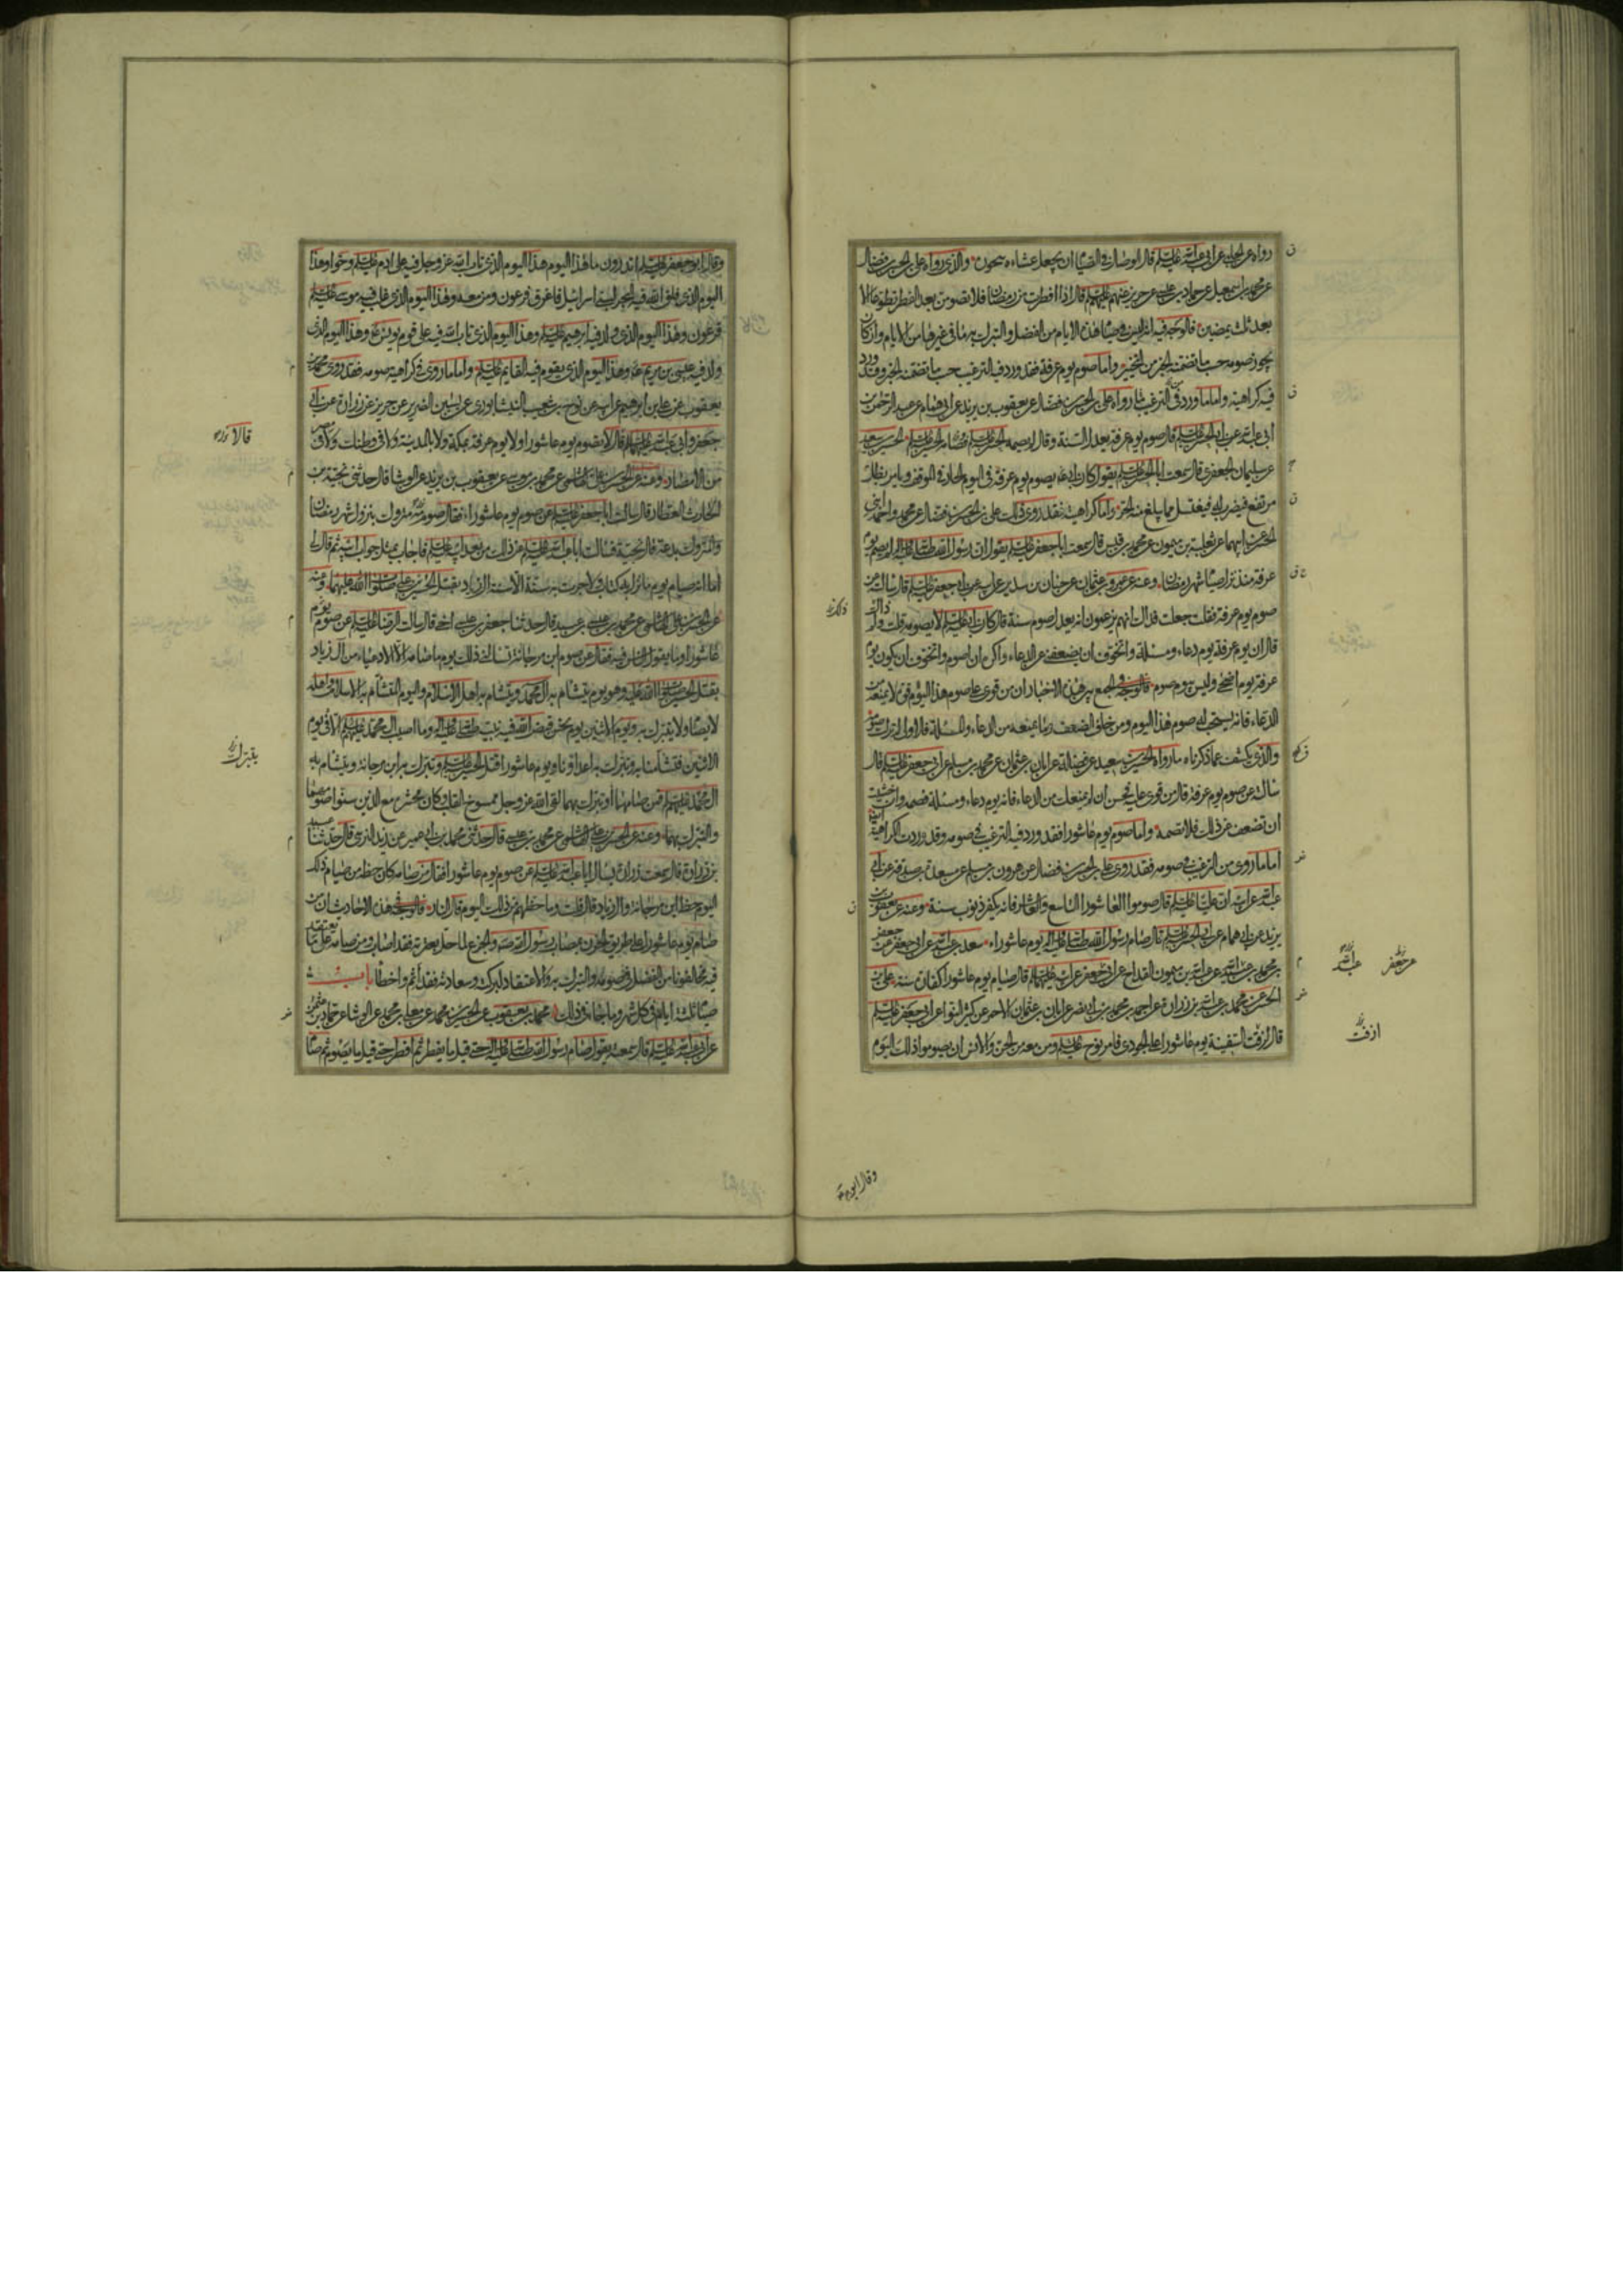 رواه عن الحلبي عن ابي عبد الله عليه السلم قال الوصال في الصيام ان يجعل عشاءه سحوره والذي رواه علي بن الحسن بن فضال
عن محمد بن اسمعيل عن حماد بن عيسى عن حريز عنهم عليهم السلم قال اذا افطرت من رمضان فلا تصومن بعد الفطر تطوعا الا
بعد ثلث يمضين فالوجه فيه انه ليس في صيام هذه الايام من الفضل والتبرك به ما في غيرها من الايام وان كان
يجوز صومه حسب ما تضمنه الخبر من التخيير واما صوم يوم عرفة فقد ورد فيه الترغيب حسب ما تضمنه الخبر وقد ورد
فيه كراهية واما ما ورد في الترغيب ما رواه علي بن الحسن بن فضال عن يعقوب بن يزيد عن ابي همام عن عبد الرحمن بن
ابي عبد الله عن ابي الحسن عليه السلم قال صوم يوم عرفة يعدل السنة وقال لم يصمه الحسن عليه السلم وصامه الحسين عليه السلم الحسين بن سعيد
عن سليمان الجعفري قال سمعت ابا الحسن عليه السلم يقول كان ابي يصوم يوم عرفة في اليوم الحار في الموقف ويامر بظل
مرتفع فيضرب له فيغتسل مما يبلغ منه الحر واما كراهيته فقد روى ذلك علي بن الحسن بن فضال عن محمد واحمد ابني
الحسن عن ابيهما عن ثعلبة بن ميمون عن محمد بن قيس قال سمعت ابا جعفر عليه السلم يقول ان رسول الله صلى الله عليه واله لم يصم يوم
عرفة منذ نزل صيام شهر رمضان وعنه عن عمرو بن عثمان عن حنان بن سدير عن ابيه عن ابي جعفر عليه السلم قال سالته عن
صوم يوم عرفة فقلت جعلت فداك انهم يزعمون انه يعدل صوم سنة قال كان ابي عليه السلم لا يصومه قلت ولم
قال ان يوم عرفة يوم دعاء ومسئلة واتخوف ان يضعفني عن الدعاء واكره ان اصومه واتخوف ان يكون يوم
عرفة يوم اضحى وليس بيوم صوم فالوجه في الجمع بين هذه الاخبار ان من قوى على صوم هذا اليوم قوة لا يمنعه من
الدعاء فانه يستحب له صوم هذا اليوم ومن خاف الضعف وما يمنعه من الدعاء والمسئلة فالاولى له ترك صومه
والذي يكشف عما ذكرناه ما رواه الحسين بن سعيد عن فضالة عن ابان بن عثمان عن محمد بن مسلم عن ابي جعفر عليه السلم قال
سالته عن صوم يوم عرفة قال من قوى عليه فحسن ان لم يمنعك من الدعاء فانه يوم دعاء ومسئلة فصمه وان خشيت
ان تضعف عن ذلك فلا تصمه واما صوم يوم عاشورا فقد ورد فيه الترغيب في صومه وقد وردت الكراهية
اما ما روى من الترغيب في صومه فقد روى علي بن الحسن بن فضال عن هرون بن مسلم عن مسعدة بن صدقة عن ابي
عبد الله عن ابيه ان عليا عليه السلم قال صوموا العاشورا التاسع والعاشر فانه يكفر ذنوب سنة وعنه عن يعقوب بن
يزيد عن ابي همام عن ابي الحسن عليه السلم قال صام رسول الله صلى الله عليه واله يوم عاشورا سعد بن عبد الله عن ابي جعفر عن جعفر
بن محمد بن عبيد الله عن عبد الله بن ميمون القداح عن ابي جعفر عن ابيه عليهما السلم قال صيام يوم عاشورا كفارة سنة علي بن
الحسن عن محمد بن عبد الله بن زرارة عن احمد بن محمد بن ابي نصر عن ابان بن عثمان الاحمر عن كثير النوا عن ابي جعفر عليه السلم
قال لزقت السفينة يوم عاشورا على الجودي فامر نوح عليه السلم ومن معه من الجن والانس ان يصوموا ذلك اليوم
عن جعفر
عبد الله
ازفت
وقال ابو جعفر
وقال ابو جعفر عليه السلم اتدرون ما هذا اليوم هذا اليوم الذي تاب الله عز وجل فيه على ادم عليه السلم وحوا وهذا
اليوم الذي فلق الله فيه البحر لبني اسرائيل فاغرق فرعون ومن معه وهذا اليوم الذي غلب فيه موسى عليه السلم
فرعون وهذا اليوم الذي ولد فيه ابرهيم عليه السلم وهذا اليوم الذي تاب الله فيه على قوم يونس وهذا اليوم الذي
ولد فيه عيسى بن مريم وهذا اليوم الذي يقوم فيه القايم عليه السلم واما ما روى في كراهية صومه فقد روى محمد بن
يعقوب عن علي بن ابرهيم عن ابيه عن نوح بن شعيب النيشابوري عن ياسين الضرير عن حريز عن زرارة عن ابي
جعفر وابي عبد الله عليهما السلم قال لا تصوم يوم عاشورا ولا يوم عرفة بمكة ولا بالمدينة ولا في وطنك ولا في مصر
من الامصار وعنه عن الحسن بن علي الهاشمي عن محمد بن موسى عن يعقوب بن يزيد عن الوشا قال حدثني نجية بن
الحارث العطار قال سالت ابا جعفر عليه السلم عن صوم يوم عاشوراء فقال صوم متروك بنزول شهر رمضان
والمتروك بدعة قال نجية فسالت ابا عبد الله عليه السلم عن ذلك من بعد ابيه عليه السلم فاجاب بمثل جواب ابيه ثم قال لي
اما انه صيام يوم ما نزل به كتاب ولا جرت به سنة الا سنة ال زياد بقتل الحسين بن علي صلوات الله عليهما وعنه
عن الحسن بن علي الهاشمي عن محمد بن عيسى بن عبيد قال حدثنا جعفر بن عيسى اخي قال سالت الرضا عليه السلم عن صوم يوم
عاشورا وما يقول الناس فيه فقال عن صوم ابن مرجانة تسالني ذلك يوم ما صامه الا الادعياء من آل زياد
بقتل الحسين صلوات الله عليه وهو يوم يتشام به آل محمد ويتشام به اهل الاسلام واليوم المتشام به الاسلام واهله
لا يصام ولا يتبرك به ويوم الاثنين يوم نحس قبض الله فيه نبيه صلى الله عليه واله وما اصيب آل محمد عليهم السلم الا في يوم
الاثنين فتشامنا به وتبرك به اعداؤنا ويوم عاشورا قتل الحسين عليه السلم وتبرك به ابن مرجانة ويتشام به
آل محمد عليهم السلم فمن صامهما او تبرك بهما لقى الله عز وجل ممسوخ القلب وكان محشره مع الذين سنوا صومهما
والتبرك بهما وعنه عن الحسن بن علي الهاشمي عن محمد بن عيسى قال حدثني محمد بن ابي عمير عن زيد النرسي قال حدثنا عبيد
بن زرارة قال سمعت زرارة يسال ابا عبد الله عليه السلم عن صوم يوم عاشورا فقال من صامه كان حظه من صيام ذلك
اليوم حظ ابن مرجانة وال زياد قال قلت وما حظهم من ذلك اليوم قال النار فالوجه في هذه الاحاديث ان من
صام يوم عاشورا على طريق الحزن بمصاب رسول الله صلى الله عليه واله والجزع لما حل بعترته فقد اصاب ومن صامه على ما يعتقد
فيه مخالفونا من الفضل في صومه والتبرك به والاعتقاد لبركته وسعادته فقد اثم واخطأ باب
صيام ثلثة ايام في كل شهر وما جاء في ذلك محمد بن يعقوب عن الحسين بن محمد عن معلى بن محمد عن الوشا عن حماد بن عثمن
عن ابي عبد الله عليه السلم قال سمعته يقول صام رسول الله صلى الله عليه واله حتى قيل ما يفطر ثم افطر حتى قيل ما يصوم ثم صام
قالا
يتبرك